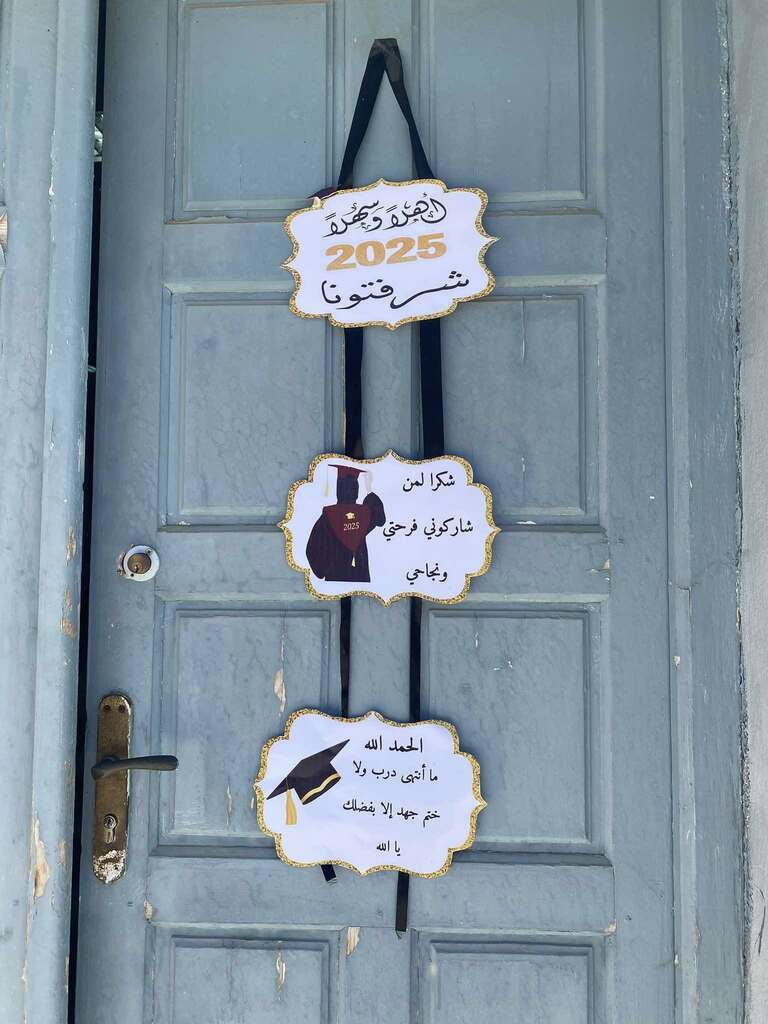 أهلاً وسهلاً
2025
شرفتونا
شكرا لمن
شاركوني فرحتي
ونجاحي
2025
الحمد الله
ما أنتهى درب ولا
ختم جهد إلا بفضلك
يا الله